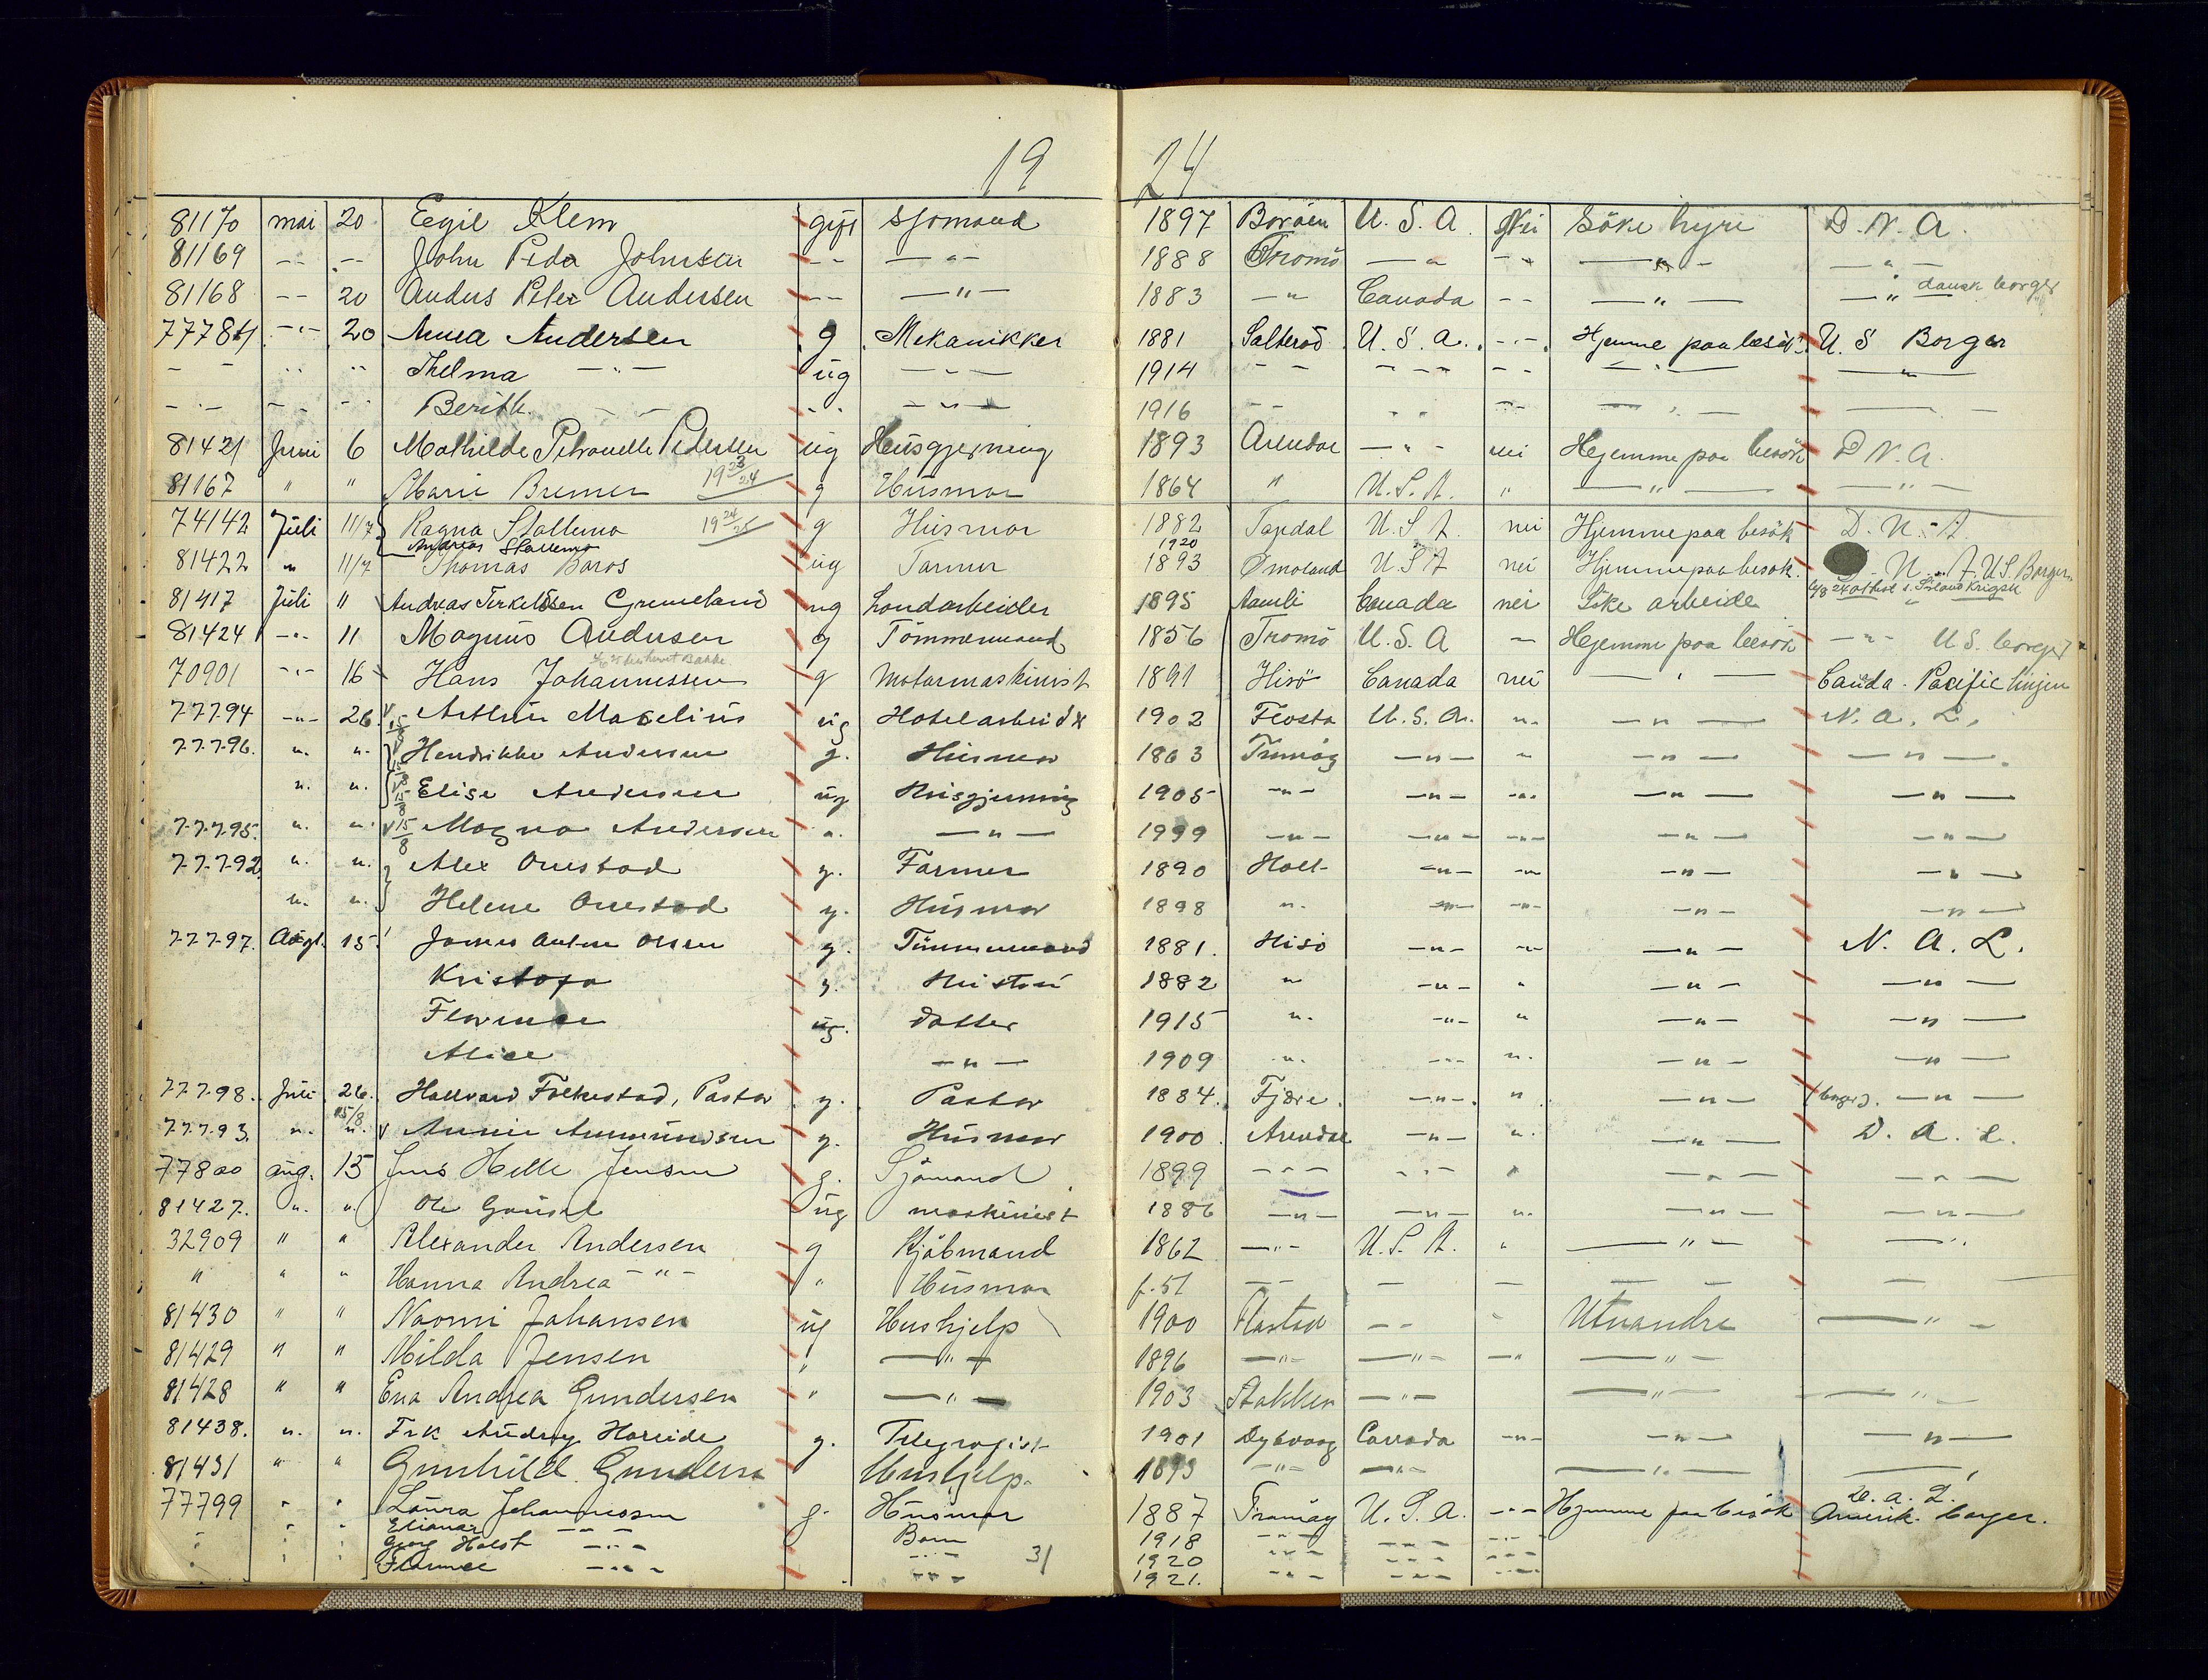 19 24
81170 mai 20 Egil Klem gift Sjømand 1897 Borøen U. S. A. Nei Söke hyre D. N. A.
81169 -- -- John Peder Johnsen -- — " — 1888 Tromö — " -- — " — — " —
81168 -- 20 Anders Peter Andersen -- — " — 1883 — " Canada -- — " — — " — dansk borger
77784 -"- 20 Anna Andersen g Mekanikker 1881 Salteröd U. S. A. -"- Hjemme paa besök U. S Borger
- - " " Thelma — " — ug — " — 1914 - - - - - - - — " — — " —
- - - - - - Berith - - - - — " — 1916 - - " " - - — " — — —
81421 Juni 6 Mathilde Petronelle Pedersen ug Husgjerning 1893 Arendal — " - nei Hejemme paa besök D N. A.
81167 " " Marie Bremer 1923/24 g Husmor 1864 " U. S. A. " — " — — " —
74142 Juli 11/7 Ragna Stallemo 1924/25 g Husmor 1882 Tovdal U. S A. nei Hjemme paa besök D. N. A.
Andreas Stallemo 1920
81422 " 11/7 Thomas Baros ug Farmer 1893 Ømoland U. S A nei Hjemme paa besök. N. A. U. S. Borger
81417 Juli " Andreas Terkelsen Grimeland ug Landarbeider 1895 Aamli Canada nei Söke arbeide "
81424 -"- 11 Magnus Andersen g Tömmermand 1856 Tromö U. S. A — Hejemme paa besök — " — U S. borger
70901 -"- 16 Hans Johannessen g Motormaskinist 1891 Hisö Canada nei — " — Canda. Pacific linjen
77794 -"- 26. V 15/8 Arthur Macelius ug Hotelarbeider 1902 Flosta U. S. A. ". — " — N. A. L.
77796. ". ". Hendrikke Andersen g. Husmor 1863 Tromög — " — " — " — — " —.
". ". 15/8 Elise Andersen ug Husgjerning 1905 — " — — " — -"- — " — — " —
77795. ". ". V 15/8 Magna Andersen ". — " — 1999 — " — — " — -"- — " — — " —
77792. ". ". Alex Omestad g. Farmer 1890 Holt — " — -"- — " — — " —
". ". Helene Omestad g. Husmor 1898 ". — " — -"- — " — — " —
77797. Augt. 15. James Anton Olsen g. Tömmermand 1881. Hisö — " — -"- — " — N. A. L.
Kristofa g. Hustru 1882 " — " — " — " — — " —
Florence ug. datter 1915 ". — " — " — " — — " —
Alice — " — 1909 ". — " — ". — " — — " —
77798. Juli 26. Hallvard Folkestad, Pastor g. Pastor 1884. Fjære. — " —. " — " — (borger). — " —
77793. ". 15/8 ". V Annie Ammundsen g. Husmor 1900. Arendal — " — ". — " — D. A. L.
77800 aug. 15 Jens Helle Jensen g. Sjömand 1899 - - - - - - " — " — — " —
81427. ". ". Ole Gausel ug maskinist 1886 — " — — " — ". — " — — " —
32909 " " Alexander Andersen g Kjöbmand 1862 — " — U. S. A. " — " — — " —
" " " Hanna Andrea — " — " Husmor f. 51 — — — — — — — —
81430 " " Naomi Johansen ug Hushjelp 1900 Flosta - - " Utvandre — " —
81429 " " Milda Jensen " — " — 1896 — " — — " — — " — " —
81428 " " Eva Andrea Gundersen " — " — 1903 Stokken — " — — " — — " —
81438. ". ". Frk Audny Hareide g. Telegrafist 1901 Dybvaag Canada -"- — " — — " —
81431 " " Gunhild Gunders Hushjelp. 1893 — " — — " — — " — —
77799 " " Laura Johannessen g. Husmor 1887 Tromöy U. S. A. -"- Hjemme paa besök D. A. L. Amerik. borger.
" " " Elianar — " — Barn 1918 — " — — " — - - -
" " " Georg Holst — " — - - - 1920 - - - - - - - - -
" Florence — " — - - - 1921. - - - - - - - - -
31